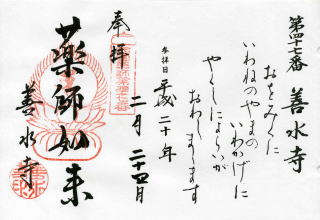 第四十七番 善水寺
おをみくに
いわねのやまの
いわかげに
やくしにょらいが
おわしまします
参拝日 平成二十年
二月二十四日
奉拝
薬師如来
善水寺